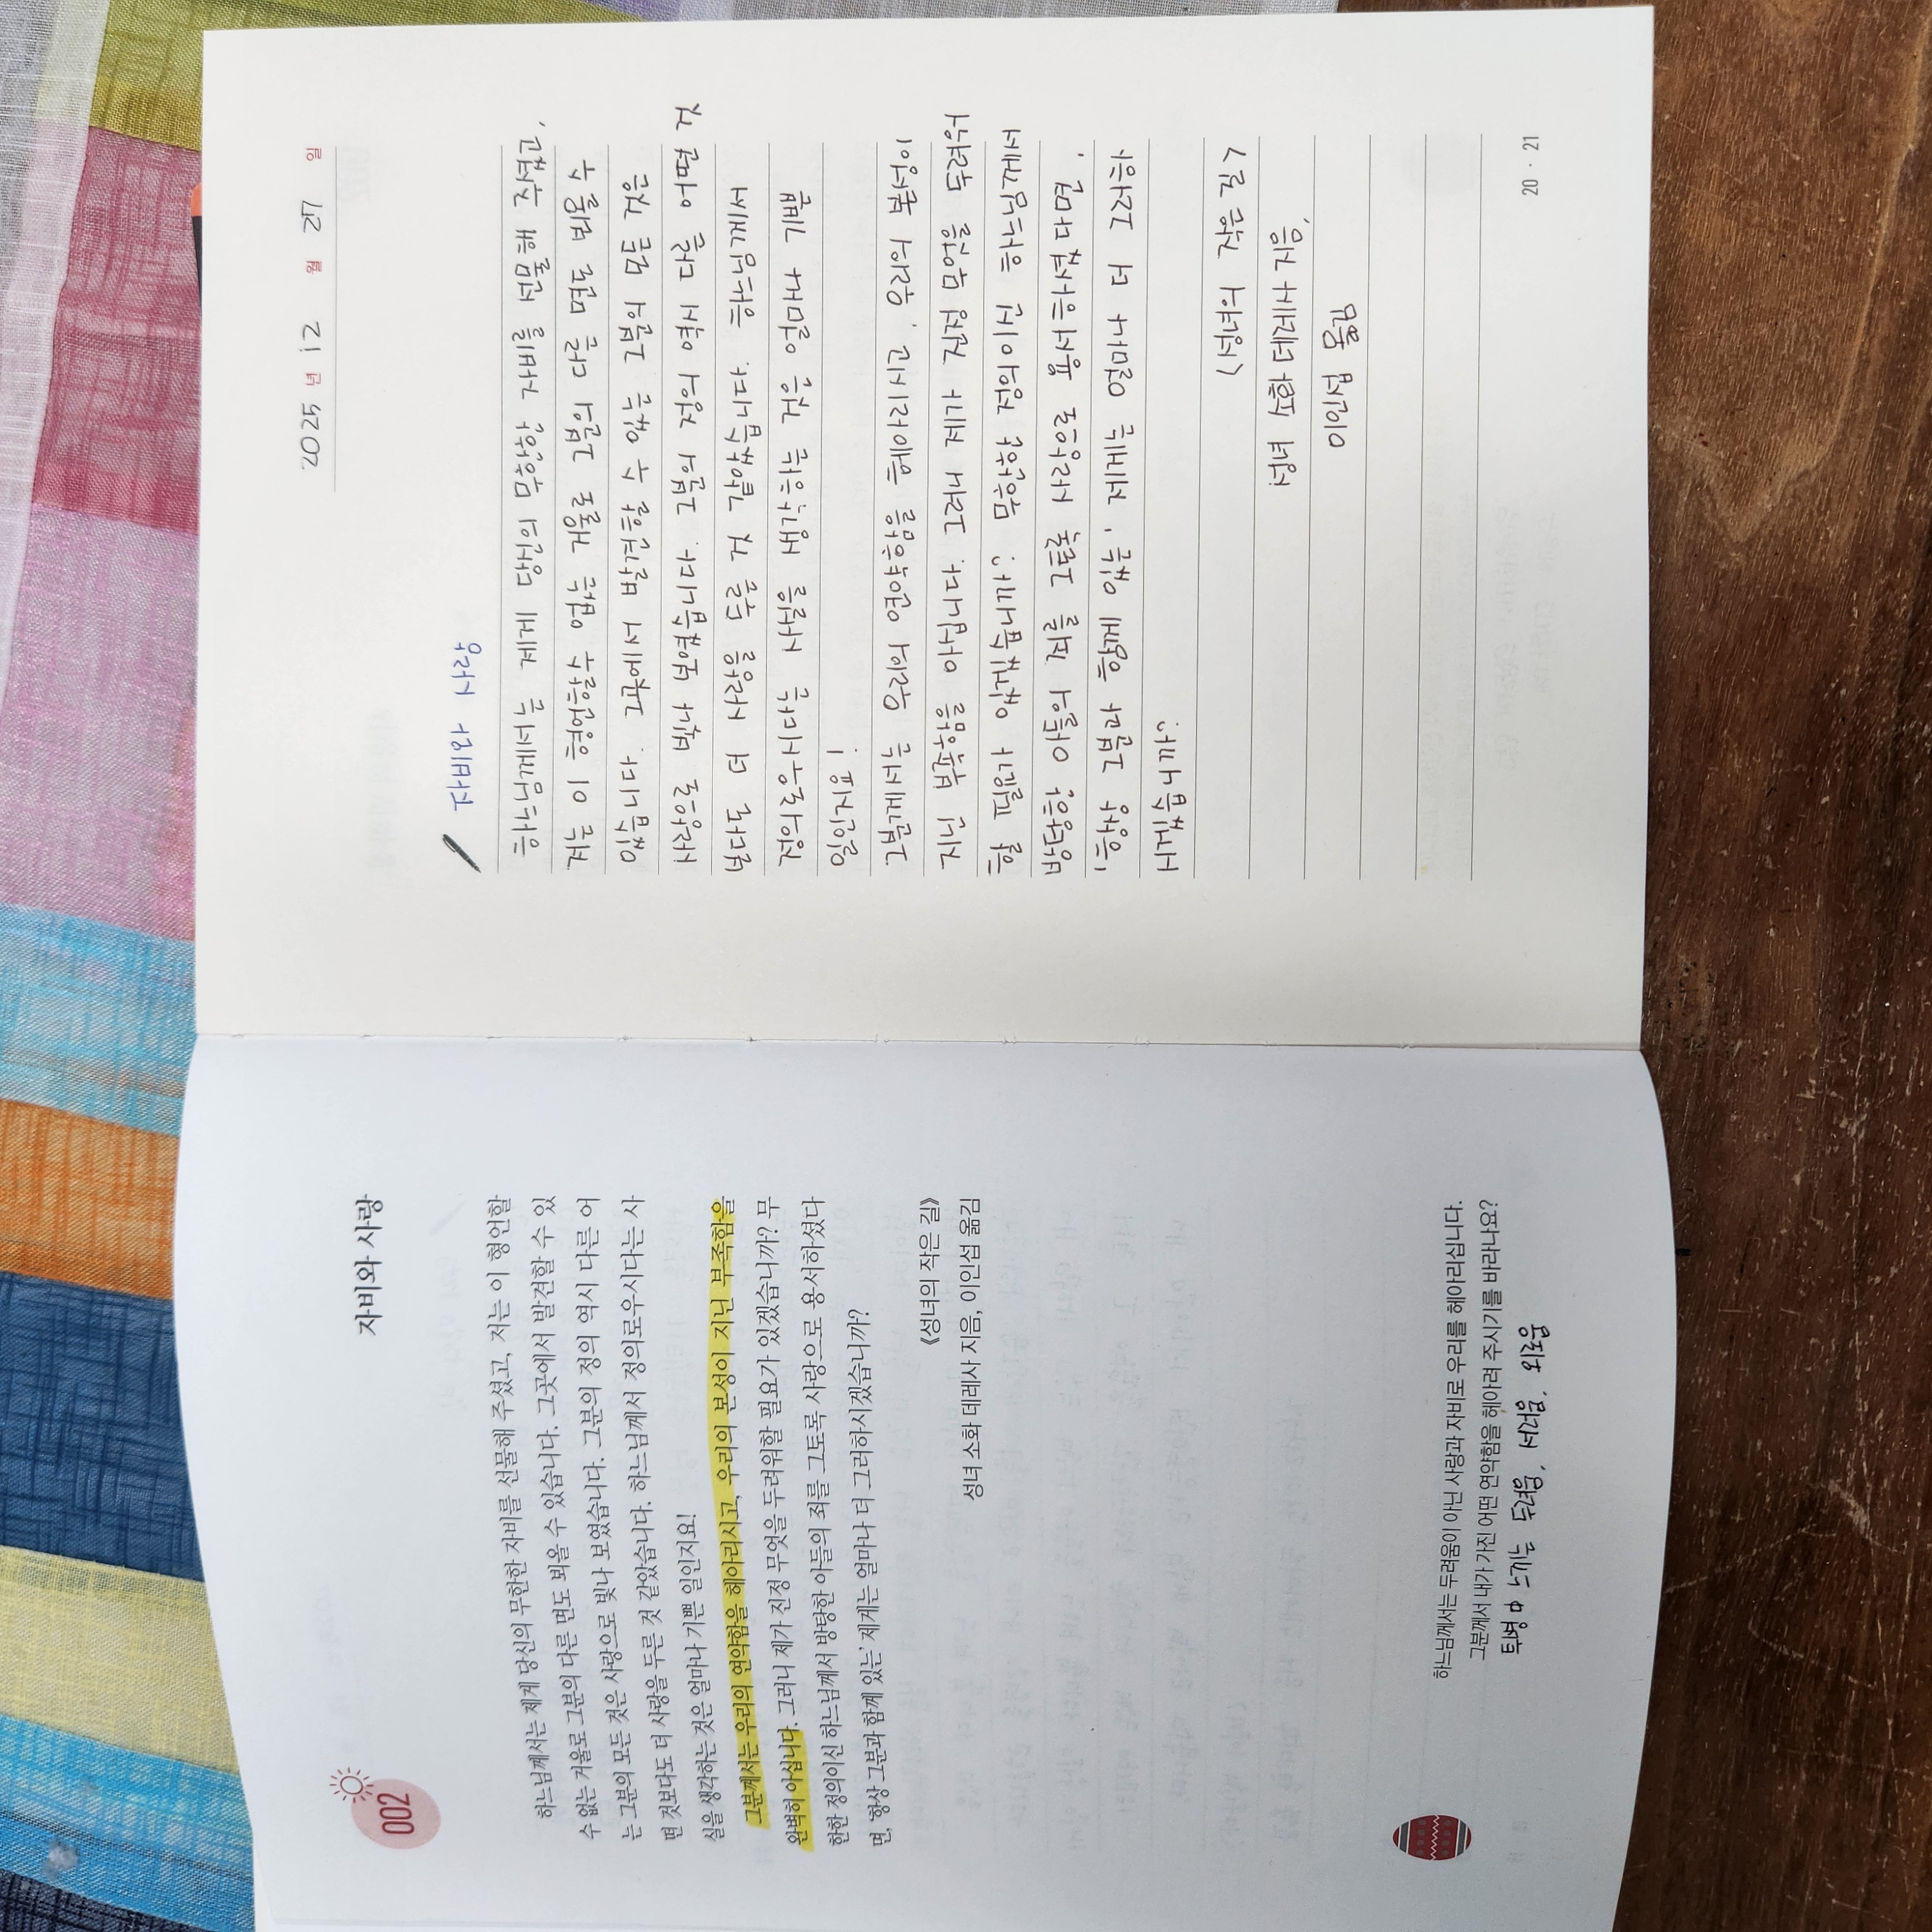 002
자비와 사랑
하느님께서는 제게 당신의 무한한 자비를 선물해 주셨고, 저는 이 형언할
수 없는 거울로 그분의 다른 면도 뵈올 수 있습니다. 그곳에서 발견할 수 있
는 그분의 모든 것은 사랑으로 빛나 보였습니다. 그분의 정의 역시 다른 어
떤 것보다도 더 사랑을 두른 것 같았습니다. 하느님께서 정의로우시다는 사
실을 생각하는 것은 얼마나 기쁜 일인지요!
그분께서는 우리의 연약함을 헤아리시고, 우리의 본성이 지닌 부족함을
완벽히 아십니다. 그러니 제가 진정 무엇을 두려워할 필요가 있겠습니까? 무
한한 정의이신 하느님께서 방탕한 아들의 죄를 그토록 사랑으로 용서하셨다
면, ‘항상 그분과 함께 있는’ 제게는 얼마나 더 그러하시겠습니까?
《성녀의 작은 길》
성녀 소화 데레사 지음, 이인섭 옮김
하느님께서는 두려움이 아닌 사랑과 자비로 우리를 헤아리십니다.
그분께서 내가 가진 어떤 연약함을 헤아려 주시기를 바라나요?
투병 中 느끼는 두려움, 서러움, 외로움
2025 년 12 월 27 일
자비와 사랑
하느님께서는 제게 당신의 무한한 자비를 선물해 주셨고,
저는 이 형언할 수 없는 거울로 그분의 다른 면도 뵈올 수
있습니다. 그곳에서 발견할 수 있는 그분의 모든 것은
사랑으로 빛나 보였습니다. 그분의 정의 역시 다른 어떤 것
보다도 더 사랑을 두른 것 같았습니다. 하느님께서
정의로우시다는 사실을 생각하는 것은 얼마나 기쁜
일인지요!
그분께서는 우리의 연약함을 헤아리시고, 우리의 본성이
지닌 부족함을 완벽히 아십니다. 그러니 제가 진정 무엇을 두려워
할 필요가 있겠습니까? 무한한 정의이신 하느님께서
방탕한 아들의 죄를 그토록 사랑으로 용서하셨다면,
'항상 그분과 함께 있는' 제게는 얼마나 더 그러하
시겠습니까?
<성녀의 작은 길>
성녀 소화 데레사 지음,
이인섭 옮김
20 · 21